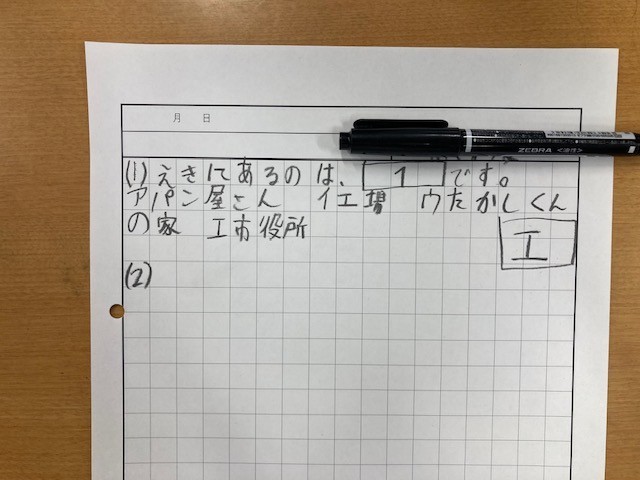 月 日
ZEBRA <油性>
(1) えきにあるのは、 1 です。
ア パン屋さん イ 工場 ウ たかしくん
の家 エ 市役所
エ
(2)